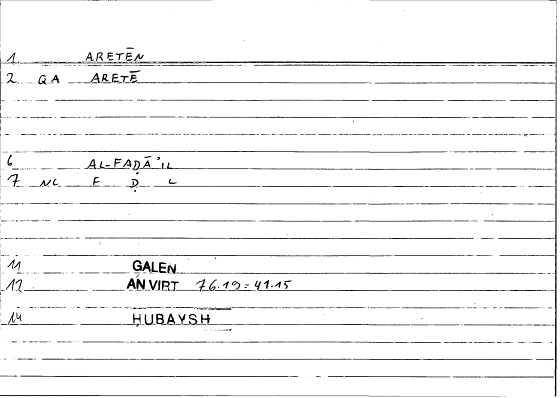 1 ARETĒN
2 QA ARETĒ
6 AL-FAḌĀ'IL
7 NL F Ḍ L
11 GALEN
12 AN VIRT 76.19 = 41.15
14 ḤUBAYSH